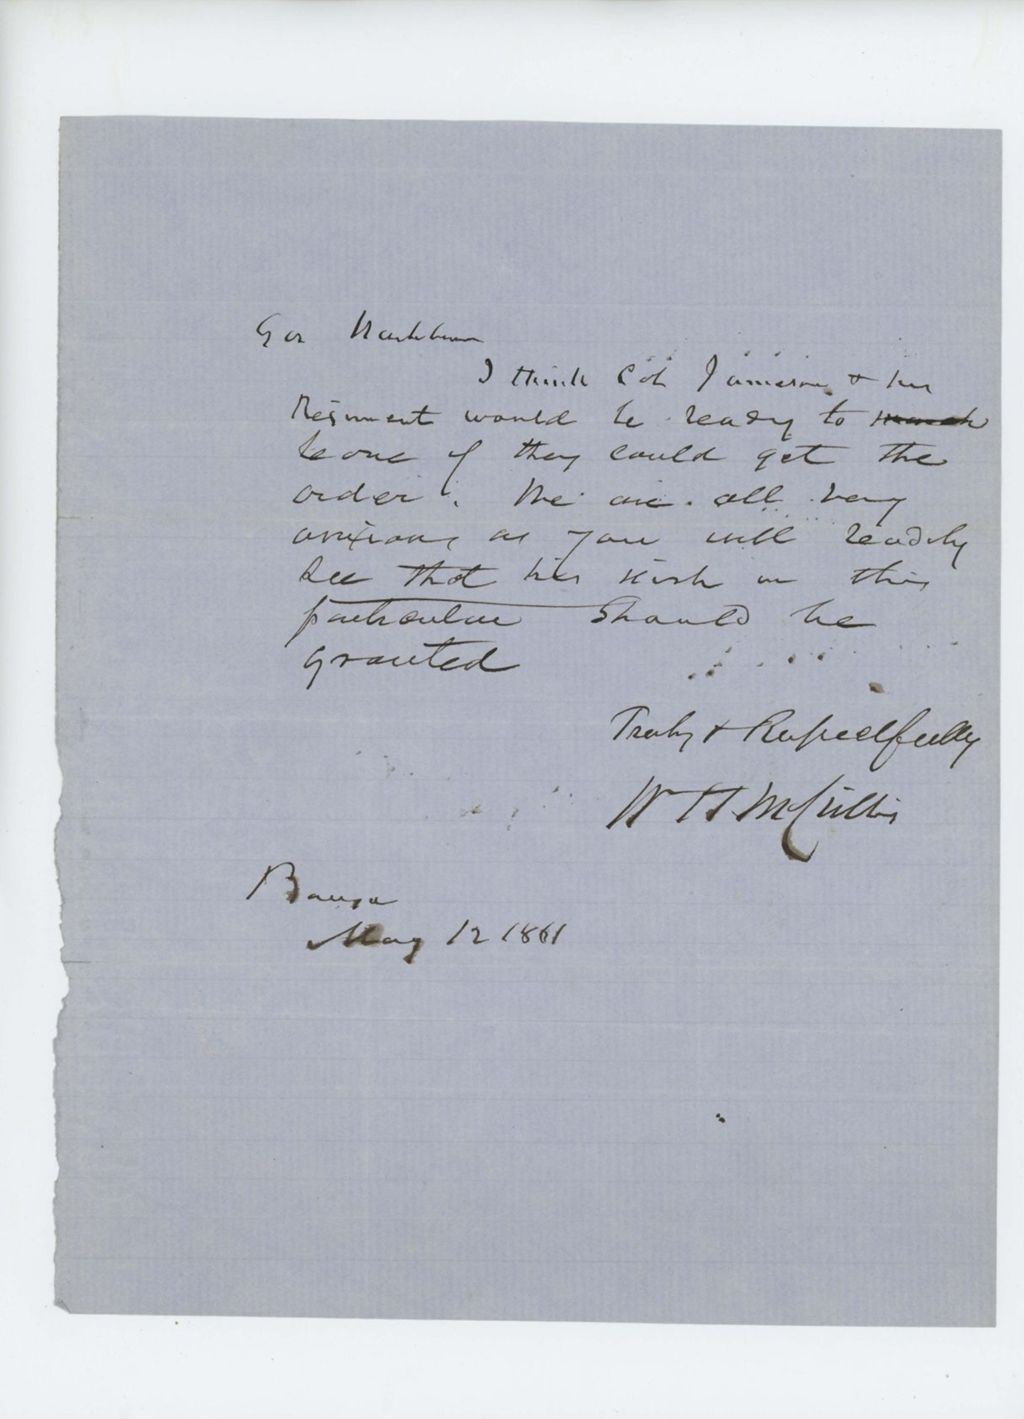 Gov Washburn
I think Col Jameson & his
Regiment would be ready to march
leave if they could get the
order. We are all very
anxious as you will readily
see that his wish in this
particular should be
granted
Truly & Respectfully
W H McCrillis
Bangor
May 12 1861